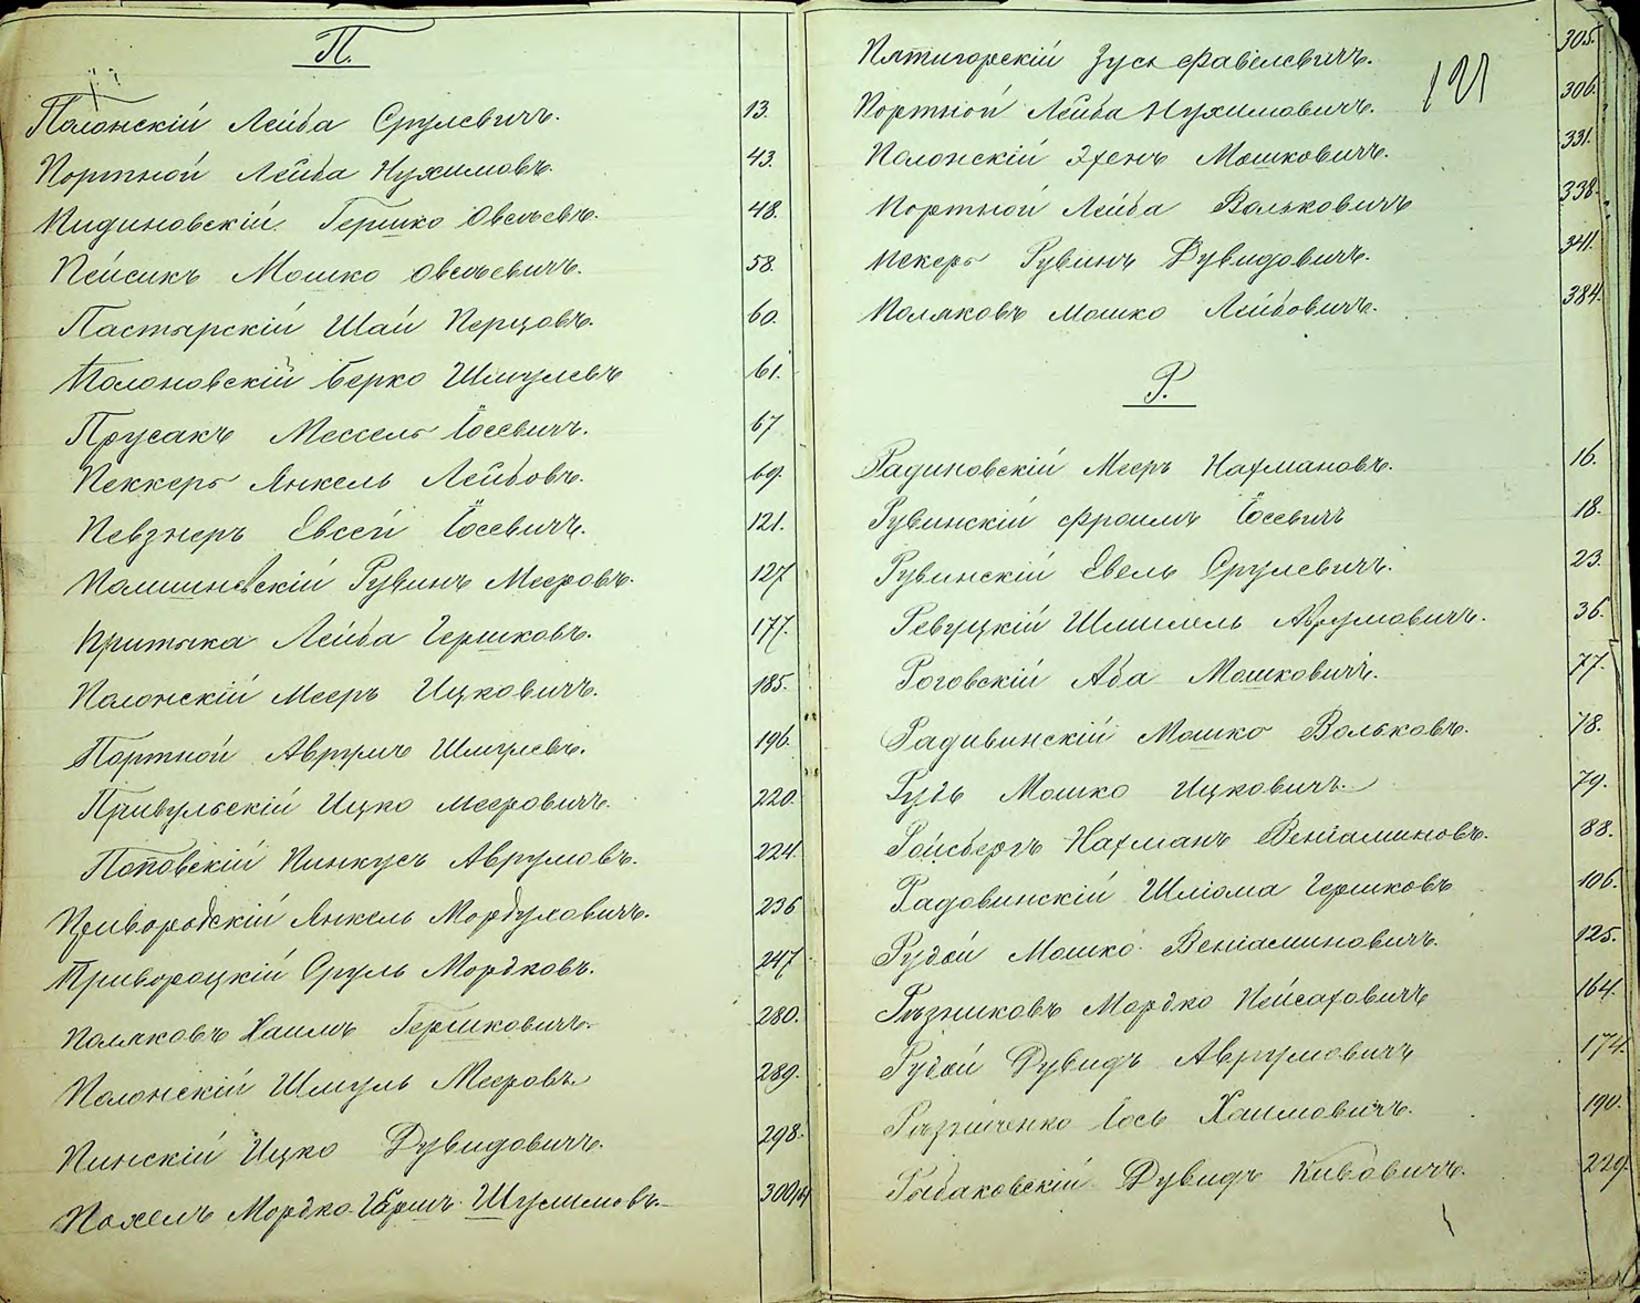 П.
Полонскій Лейба Срулевичъ. 13.
Портной Лейба Нухимовъ. 43.
Пидиновскій Гершко Овсѣевъ. 48.
Пейсикъ Мошко Овсѣевичъ. 58.
Пастырскій Шай Перцовъ. 60.
Полоновскій Берко Шмулевъ 61.
Прусакъ Мессель Іосевичъ. 67
Пеккеръ Янкель Лейбовъ. 69.
Певзнеръ Евсей Іосевичъ. 121.
Рувинъ Мееровъ. 127
Притыка Лейба Гершковъ. 177.
Полонскій Мееръ Ицковичъ. 185.
Портной Аврумъ Шмулевъ. 196.
Привульскій Ицко Мееровичъ. 220.
Поповскій Пинкусъ Аврумовъ. 224.
Привородскій Янкель Мордуховичъ. 236
Привороцкій Сруль Мордковъ. 247
Поляковъ Хаимъ Гершковичъ. 280.
Полонскій Шмуль Мееровъ. 289.
Пинскій Ицко Дувидовичъ. 298.
Мордко Гершъ
Пятигорскій Зусь Файвелевичъ. 305.
121
Портной Лейба Нухимовичъ. 306.
Полонскій Эфенъ Мошковичъ. 331.
Портной Лейба Вольковичъ 338.
Пекеръ Рувинъ Дувидовичъ. 341.
Поляковъ Мошко Лейбовичъ. 384.
Р.
Радиновскій Мееръ Нахмановъ. 16.
Рувинскій Фроимъ Іосевичъ 18.
Рувинскій Евель Срулевичъ. 23.
Ревуцкій Шмилель Аврумовичъ. 36.
Роговскій Аба Мошковичъ. 77.
Радивинскій Мошко Вольковъ. 78.
Рудь Мошко Ицковичъ. 79.
Ройсбергъ Нахманъ Веніаминовъ. 88.
Радовинскій Шліома Гершковъ 106.
Рудой Мошко Веніаминовичъ. 125.
Рѣзниковъ Мордко Пейсаховичъ 164.
Рудой Дувидъ Аврумовичъ 174.
Рѣзниченко Іось Хаимовичъ. 190.
Рыбаковскій Дувидъ Кивовичъ. 229.